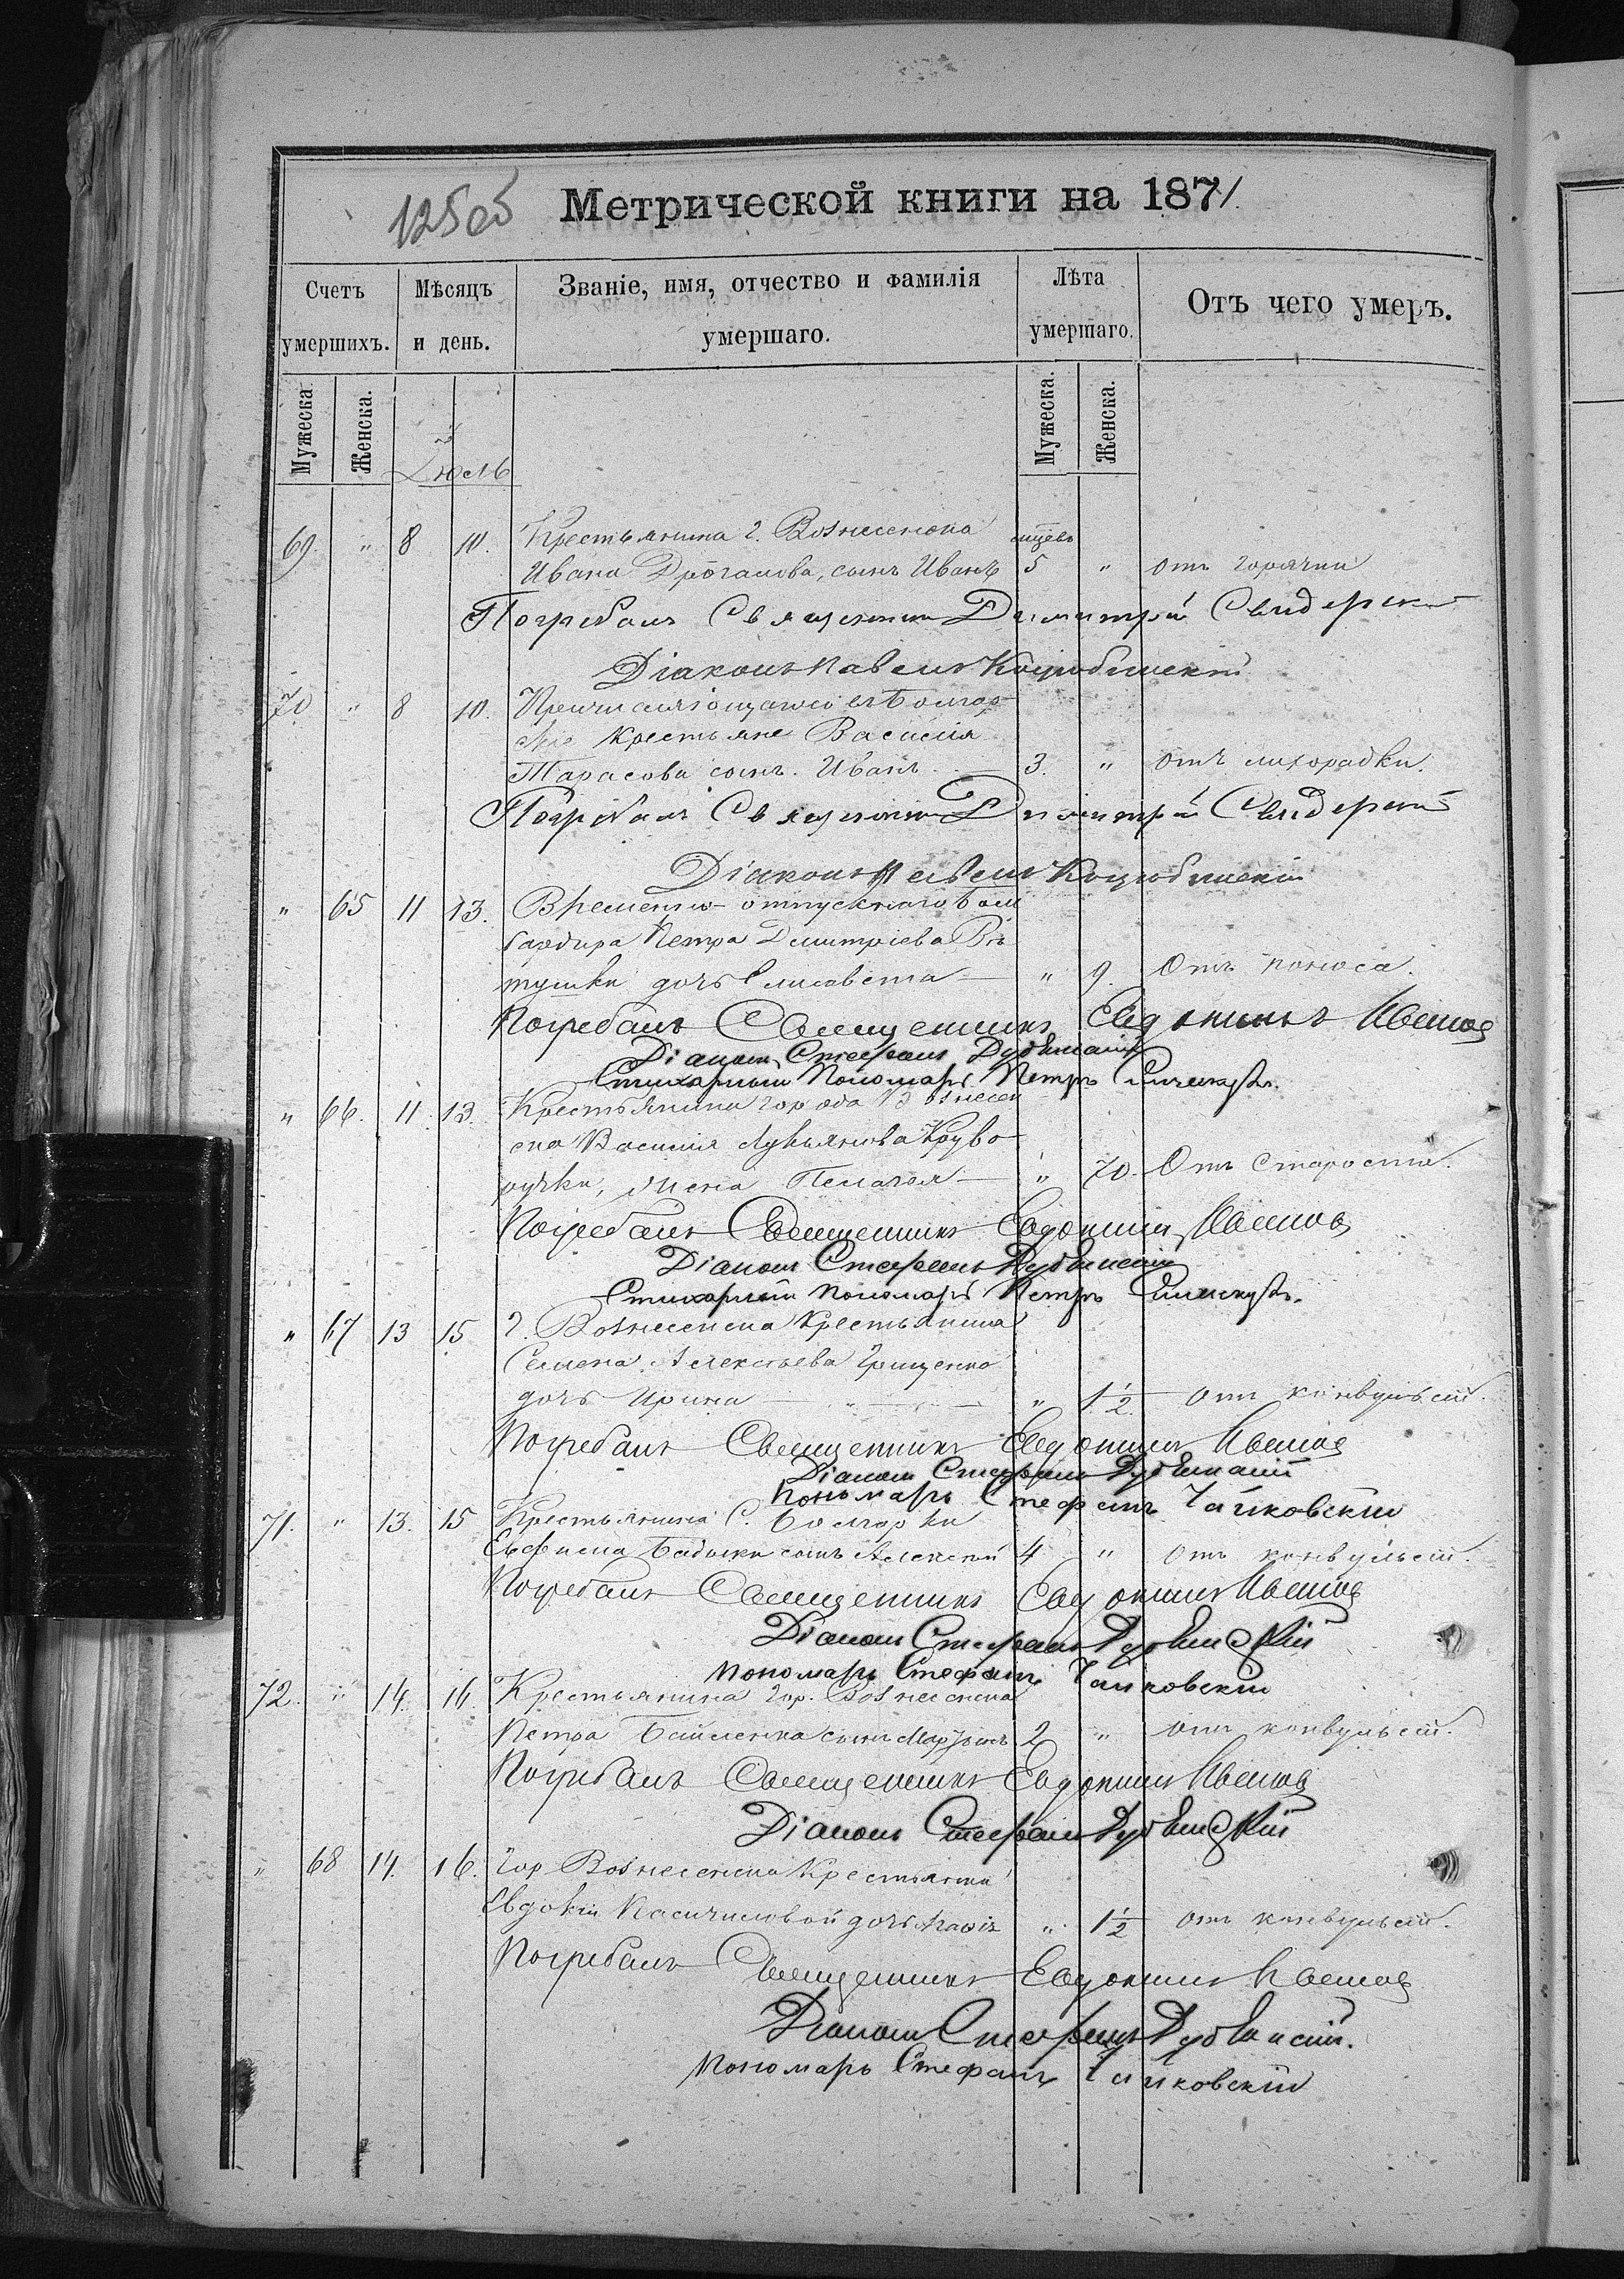 125об Метрической книги на 1871
Счетъ умершихъ. Мѣсяцъ и день. Званіе, имя, отчество и фамилія умершаго. Лѣта умершаго. Отъ чего умеръ.
Мужеска Женска. Мужеска. Женска.
Іюль
69. " 8 10. Крестьянина г. Вознесенска
Ивана сынъ Иванъ 5 " отъ горячки
Погребалъ Священникъ Димитрій Свидерскій
Діаконъ Павелъ Коцюбинскій
70 " 8 10. Причисляющагося въ Болгар-
скіе крестьяне Василія
Тарасова сынъ Иванъ 3. " отъ лихорадки.
Погребалъ Священникъ Димитрій Свидерскій
Діаконъ Павелъ Коцюбинскій
" 65 11 13. Временно-отпускнаго бом
бардира Петра Дмитріева
дочь Елисавета — " 9. Отъ поноса.
Погребалъ Священникъ Евдокимъ
Діаконъ Стефанъ
Стихарный Пономарь Петръ
" 66. 11. 13. Крестьянина города Вознесен
ска Василія Лукьянова Криво
ручки, жена Пелагея — " 70. Отъ старости.
Погребалъ Священникъ Евдокимъ
Діаконъ Стефанъ
Стихарный Пономарь Петръ
" 67 13 15 г. Вознесенска крестьянина
Семена Алексѣева Грищенко
дочь Ирина — " — " 1 1/2 отъ конвульсій.
Погребалъ Священникъ Евдокимъ
Діаконъ Стефанъ
Пономарь Стефанъ Чайковскій
71. " 13. 15 Крестьянина С. Болгарки
сынъ Алексѣй 4 " отъ конвульсій.
Погребалъ Священникъ Евдокимъ
Діаконъ Стефанъ
Пономарь Стефанъ Чайковскій
72. " 14. 16. Крестьянина гор. Вознесенска
Петра сынъ 2 " отъ конвульсій.
Погребалъ Священникъ Евдокимъ
Діаконъ Стефанъ
" 68 14. 16. Гор Вознесенска Крестьянки
Евдокіи дочь 1 1/2 отъ конвульсій.
Погребалъ Священникъ Евдокимъ
Діаконъ Стефанъ
Пономарь Стефанъ Чайковскій